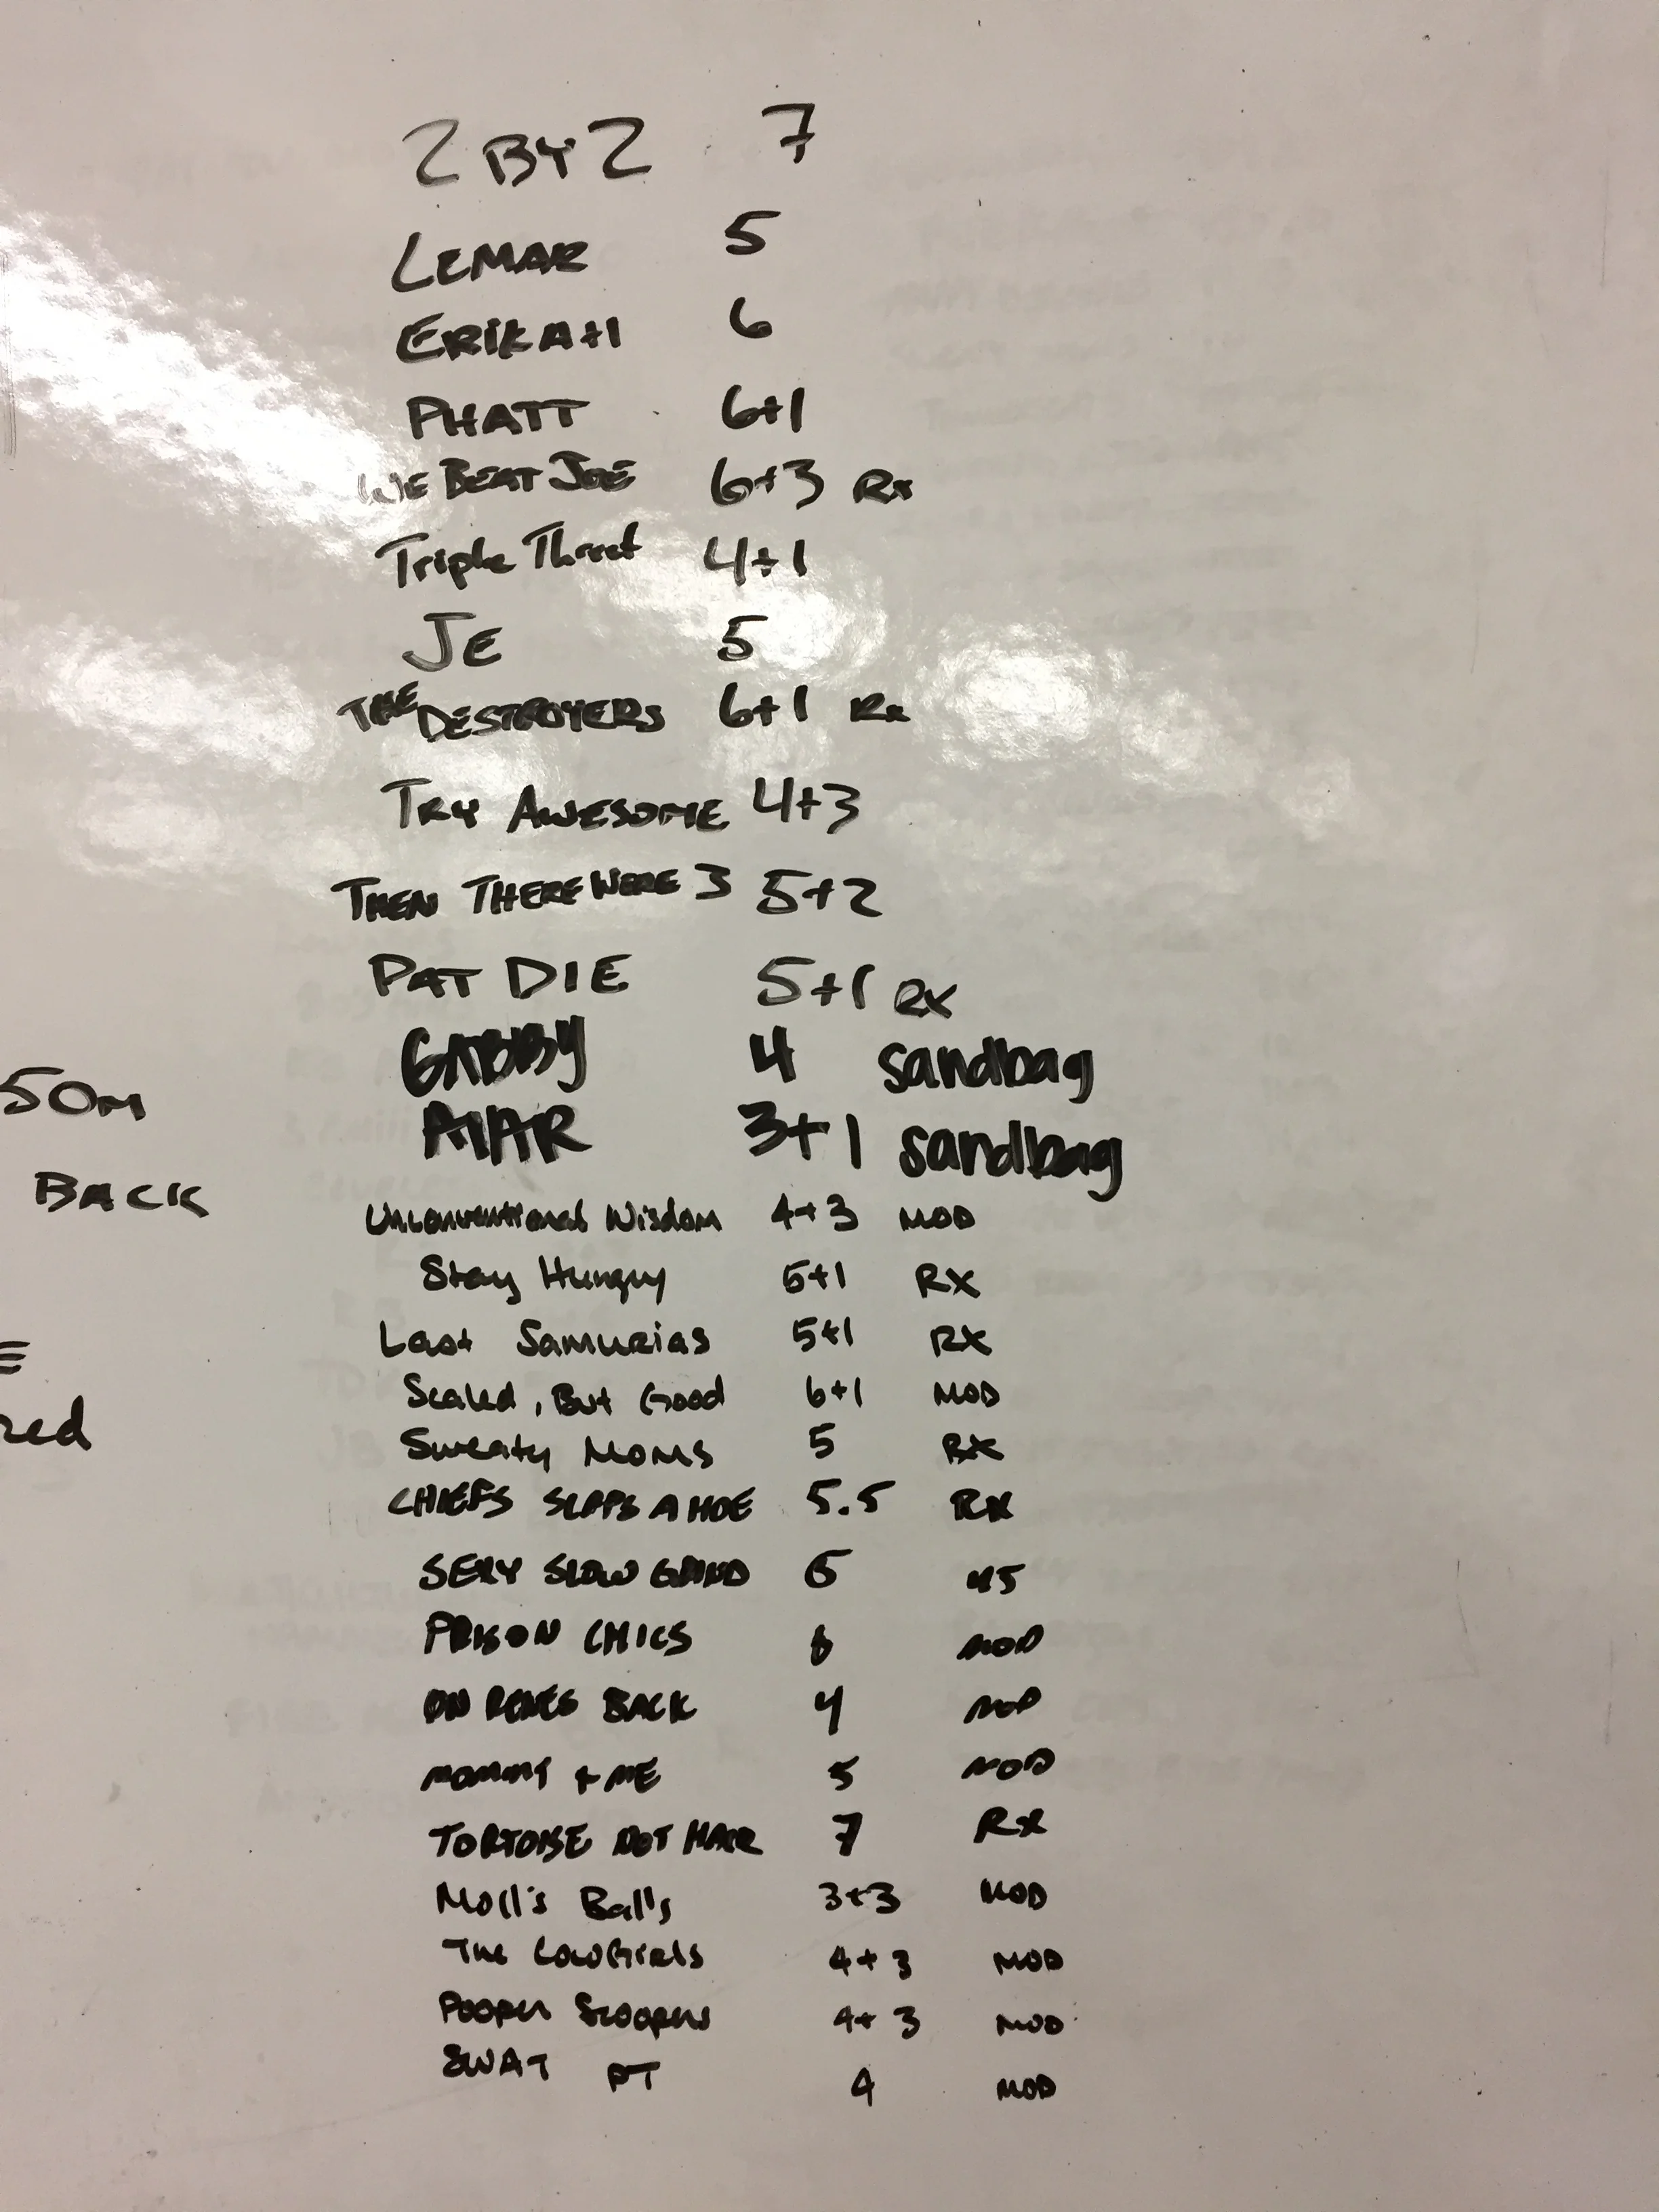 2 BY 2 7
LEMAR 5
ERIKA+1 6
PHATT 6+1
WE BEAT JOE 6+3 Rx
Triple Threat 4+1
JE 5
THE DESTROYERS 6+1 Rx
TRY AWESOME 4+3
THEN THERE WERE 3 5+2
PAT DIE 5+1 RX
GABBY 4 sandbag
50m
3+1 sandbag
BACK
Unconventional Wisdom 4+3 MOD
Stay Hungry 5+1 RX
Last Samurias 5+1 RX
Scaled, But Good 6+1 MOD
red
Sweaty Moms 5 RX
CHIEFS SLAPS A HOE 5.5 RX
SERY SLOW GRIND 45
PRISON CHICS MOD
ON RENES BACK 4 MOD
MOMMY + ME 5 MOD
TORTOISE NOT HAIR 7 RX
Moll's Balls 3+3 MOD
The CowGirls 4+3 MOD
Pooper Scoopers 4+3 MOD
SWAT PT 4 MOD